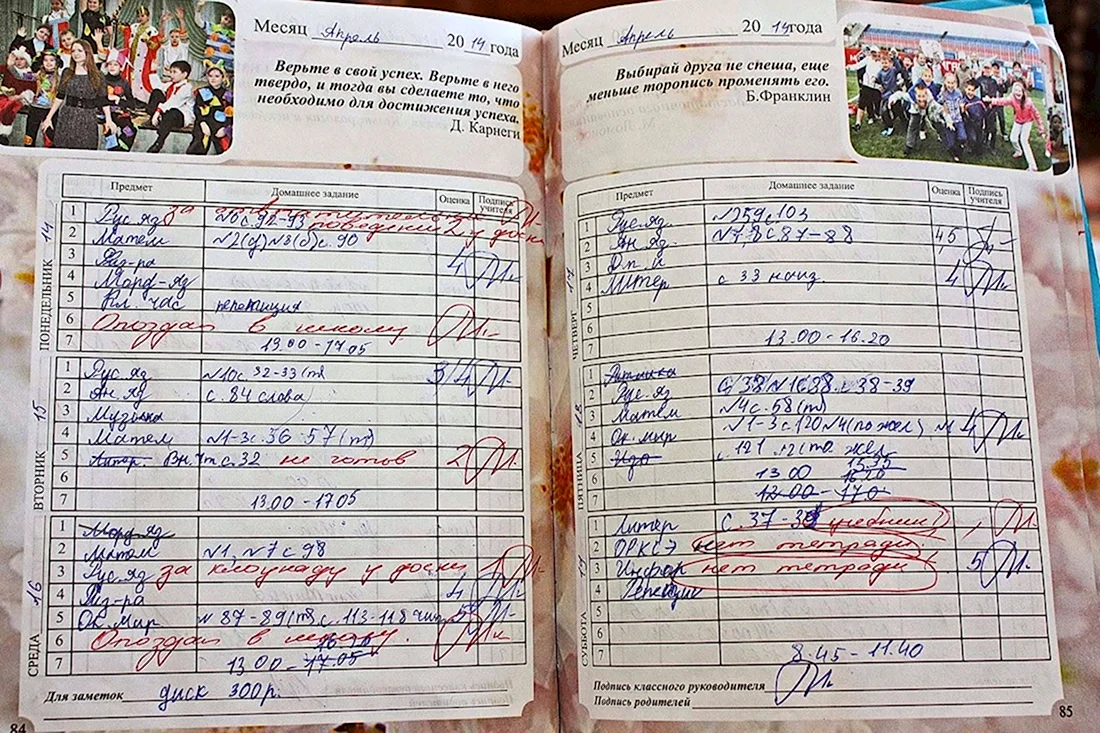 Месяц Апрель 2014 года
Верьте в свой успех. Верьте в него
твердо, и тогда вы сделаете то, что
необходимо для достижения успеха.
Д. Карнеги
Предмет Домашнее задание Оценка Подпись учителя
ПОНЕДЕЛЬНИК 14
1 Рус. яз за №6 с. 92-93
поведения у доски
2 Матем №2(д) №3(д) с. 90
3 Физ-ра
4 Морд-яз 4
5 Кл. час репетиция
6 Опоздал в школу
7 13.00 - 17.05
ВТОРНИК 15
1 Рус. яз №10 с. 32-33(т) 3/4
2 Ан. яз с. 84 слова
3 Музыка
4 Матем №1-3 с. 56-57(т)
5 Литер. Вн. чт с. 32 не готов 2
6
7 13.00 - 17.05
СРЕДА 16
1 Морд-яз
2 Матем №1, №7 с 98
3 Рус. яз за клоунаду у доски 1
4 Физ-ра 4
5 Ок. мир №87-89(т) с. 113-118 5
6 Опоздал в школу.
16.20
7 13.00 - 17.05
Для заметок диск 300 р.
84
Месяц Апрель 2014 года
Выбирай друга не спеша, еще
меньше торопись променять его.
Б.Франклин
Предмет Домашнее задание Оценка Подпись учителя
ЧЕТВЕРГ 17
1 Рус. яз. №259 с. 103
2 Ан. яз. №7,8 с. 87-88 45
3
4 Литер с 33 наиз. 4
5
6
7 13.00 - 16.20
ПЯТНИЦА 18
1 Ритмика
2 Рус. яз
3 Матем №4 с. 58(т)
4 Ок. мир №1-3 с. 120 №4 (по жел) 4
5 Изо с. 121
6 13.00 15.35
16.20
7 12.00 - 17.0
СУББОТА 19
1 Литер с. 37-39 учебник
2 ОРКСЭ нет тетради
3 Инфор нет тетради 5
4 Репетиция
5
6
7 8.45 - 11.40
Подпись классного руководителя
Подпись родителей
85